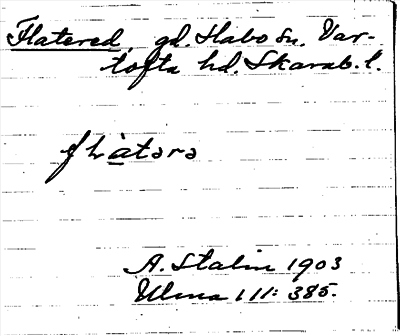 Flatered, gd. Habo sn. Var-
tofta hd. Skarab. l.
flàtərə
A. Stalin 1903
Ulma 111: 385.